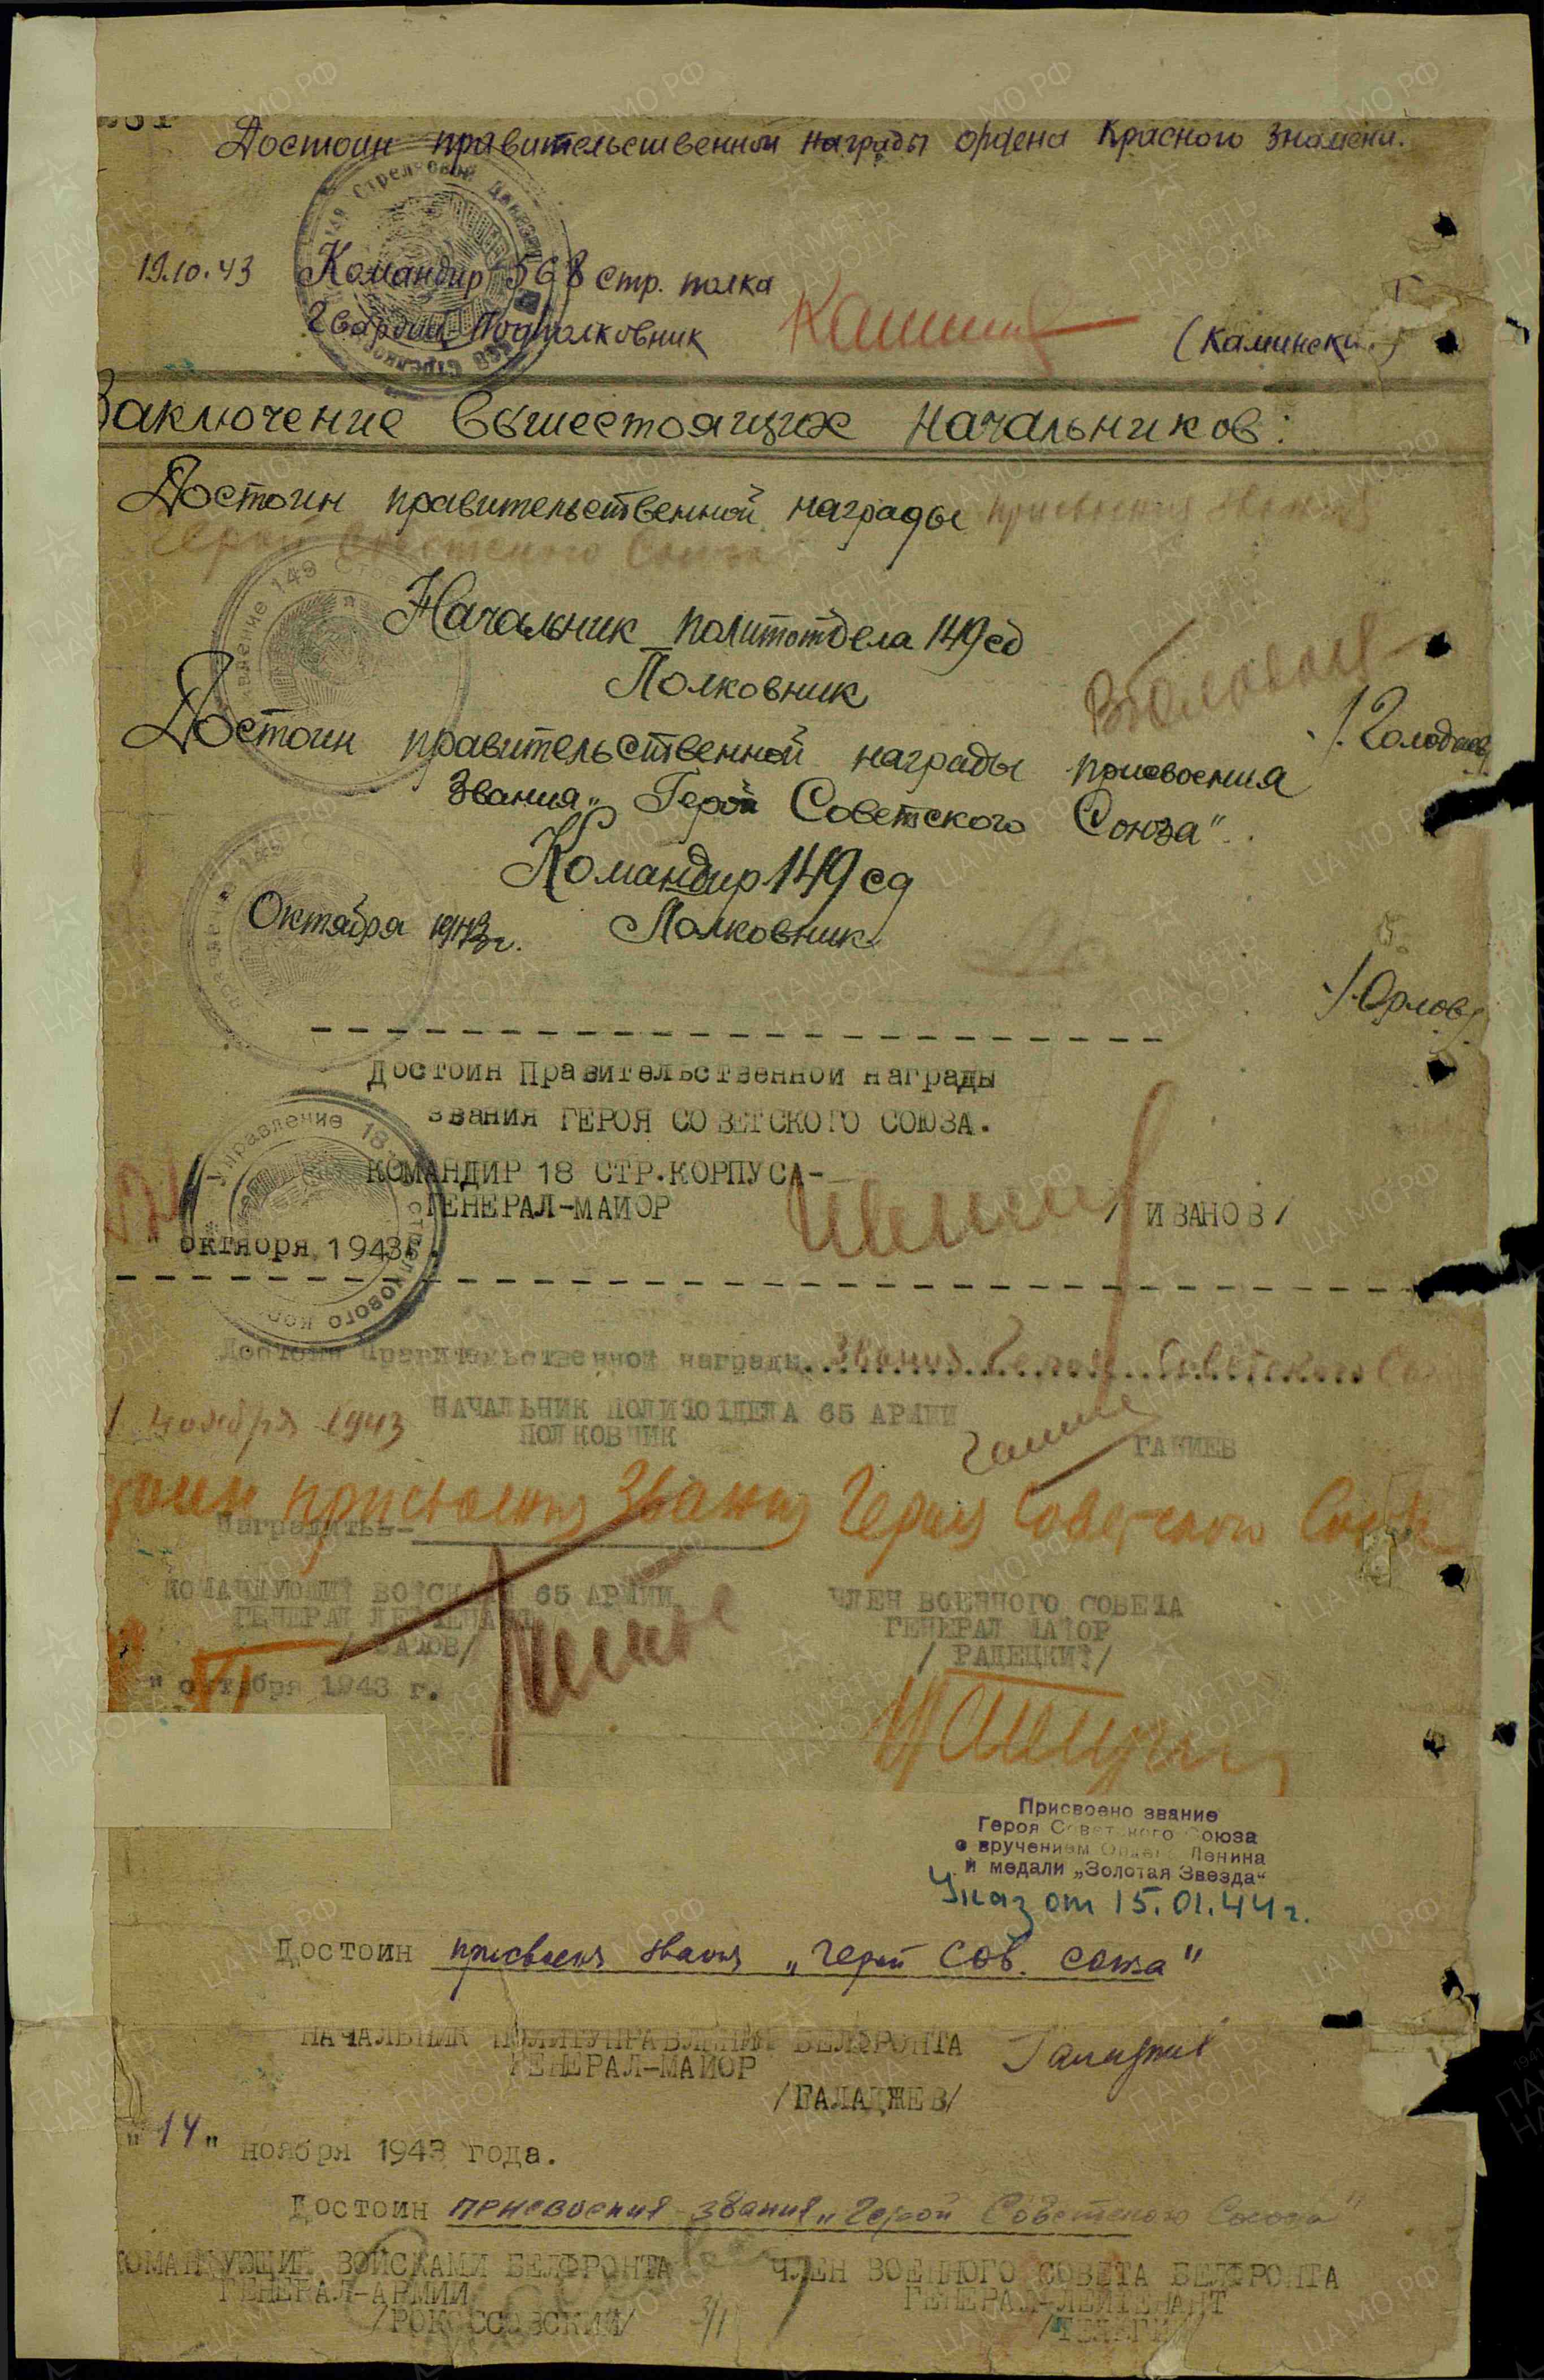 Достоин правительственной награды ордена Красного Знамени.
19.10.43 Командир 568 стр. полка
Гвардии Подполковник (Камински
Заключение вышестоящих начальников:
Достоин правительственной награды присвоения звания
Герой Советского Союза
Начальник политотдела 149 сд
Полковник
Достоин правительственной награды присвоения
звания „Герой Советского Союза".
Командир 149 сд
Октября 1943 г. Полковник
/Орлов/
Достоин Правительственной награды
звания ГЕРОЯ СОВЕТСКОГО СОЮЗА.
КОМАНДИР 18 СТР.КОРПУСА-
ГЕНЕРАЛ-МАЙОР / ИВАНОВ/
октября 1943г.
Достоин Правительственной награды звания Героя Советского
1 ноября 1943 НАЧАЛЬНИК ПОЛИТОТДЕЛА 65 АРМИИ
ПОЛКОВНИК ГАНИЕВ
присвоения звания Героя Советского Союза
Наградить-
КОМАНДУЮЩИЙ ВОЙСКАМИ 65 АРМИИ ЧЛЕН ВОЕННОГО СОВЕТА
ГЕНЕРАЛ ЛЕЙТЕНАНТ ГЕНЕРАЛ МАЙОР
/БАТОВ/ / РАДЕЦКИЙ/
" октября 1943 г.
Присвоено звание
Героя Советского Союза
с вручением Ордена Ленина
и медали „Золотая Звезда"
Указ от 15.01.44 г.
Достоин присвоения звания „Герой Сов. Союза"
НАЧАЛЬНИК ПОЛИТУПРАВЛЕНИЯ БЕЛФРОНТА
ГЕНЕРАЛ-МАЙОР
/ГАЛАДЖЕВ/
"14" ноября 1943 года.
Достоин присвоения звания „Герой Советского Союза"
КОМАНДУЮЩИЙ ВОЙСКАМИ БЕЛФРОНТА ЧЛЕН ВОЕННОГО СОВЕТА БЕЛФРОНТА
ГЕНЕРАЛ-АРМИИ ГЕНЕРАЛ-ЛЕЙТЕНАНТ
/РОКОССОВСКИЙ/ /ТЕЛЕГИН/